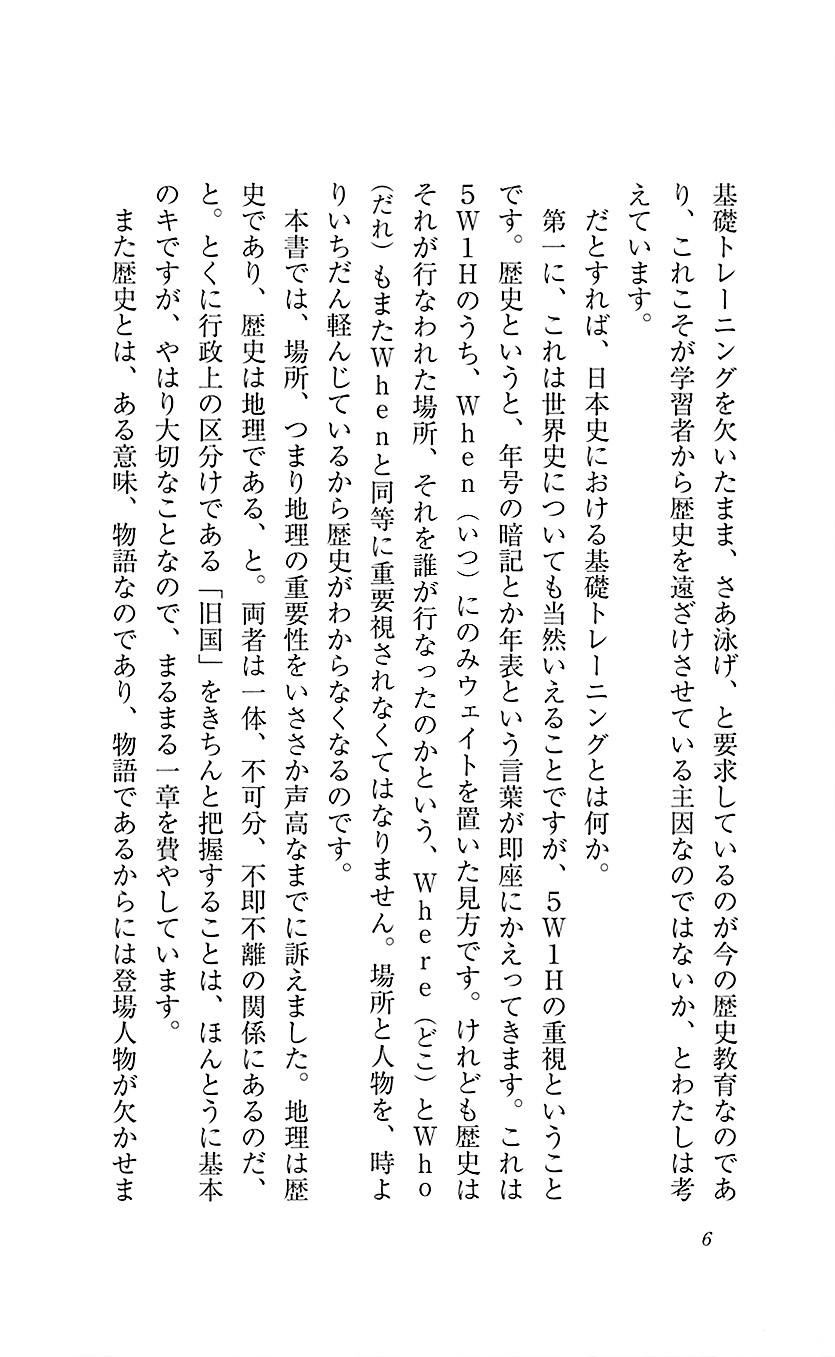 基礎トレーニングを欠いたまま、さあ泳げ、と要求しているのが今の歴史教育なのであ
り、これこそが学習者から歴史を遠ざけさせている主因なのではないか、とわたしは考
えています。
だとすれば、日本史における基礎トレーニングとは何か。
第一に、これは世界史についても当然いえることですが、5W1Hの重視ということ
です。歴史というと、年号の暗記とか年表という言葉が即座にかえってきます。これは
5W1Hのうち、When（いつ）にのみウェイトを置いた見方です。けれども歴史は
それが行なわれた場所、それを誰が行なったのかという、Where（どこ）とWho
（だれ）もまたWhenと同等に重要視されなくてはなりません。場所と人物を、時よ
りいちだん軽んじているから歴史がわからなくなるのです。
本書では、場所、つまり地理の重要性をいささか声高なまでに訴えました。地理は歴
史であり、歴史は地理である、と。両者は一体、不可分、不即不離の関係にあるのだ、
と。とくに行政上の区分けである「旧国」をきちんと把握することは、ほんとうに基本
のキですが、やはり大切なことなので、まるまる一章を費やしています。
また歴史とは、ある意味、物語なのであり、物語であるからには登場人物が欠かせま
6